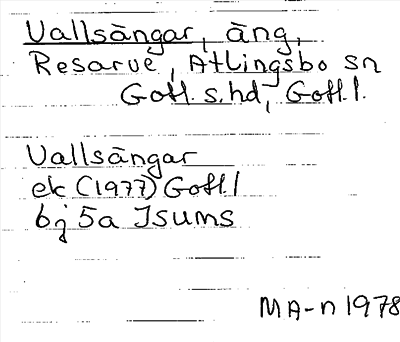 Vallsängar, äng,
Resarve, Atlingsbo sn
Gotl. s. hd, Gotl. l.
Vallsängar
ek (1977) Gotl. l
6j 5a Isums
MA-n 1978